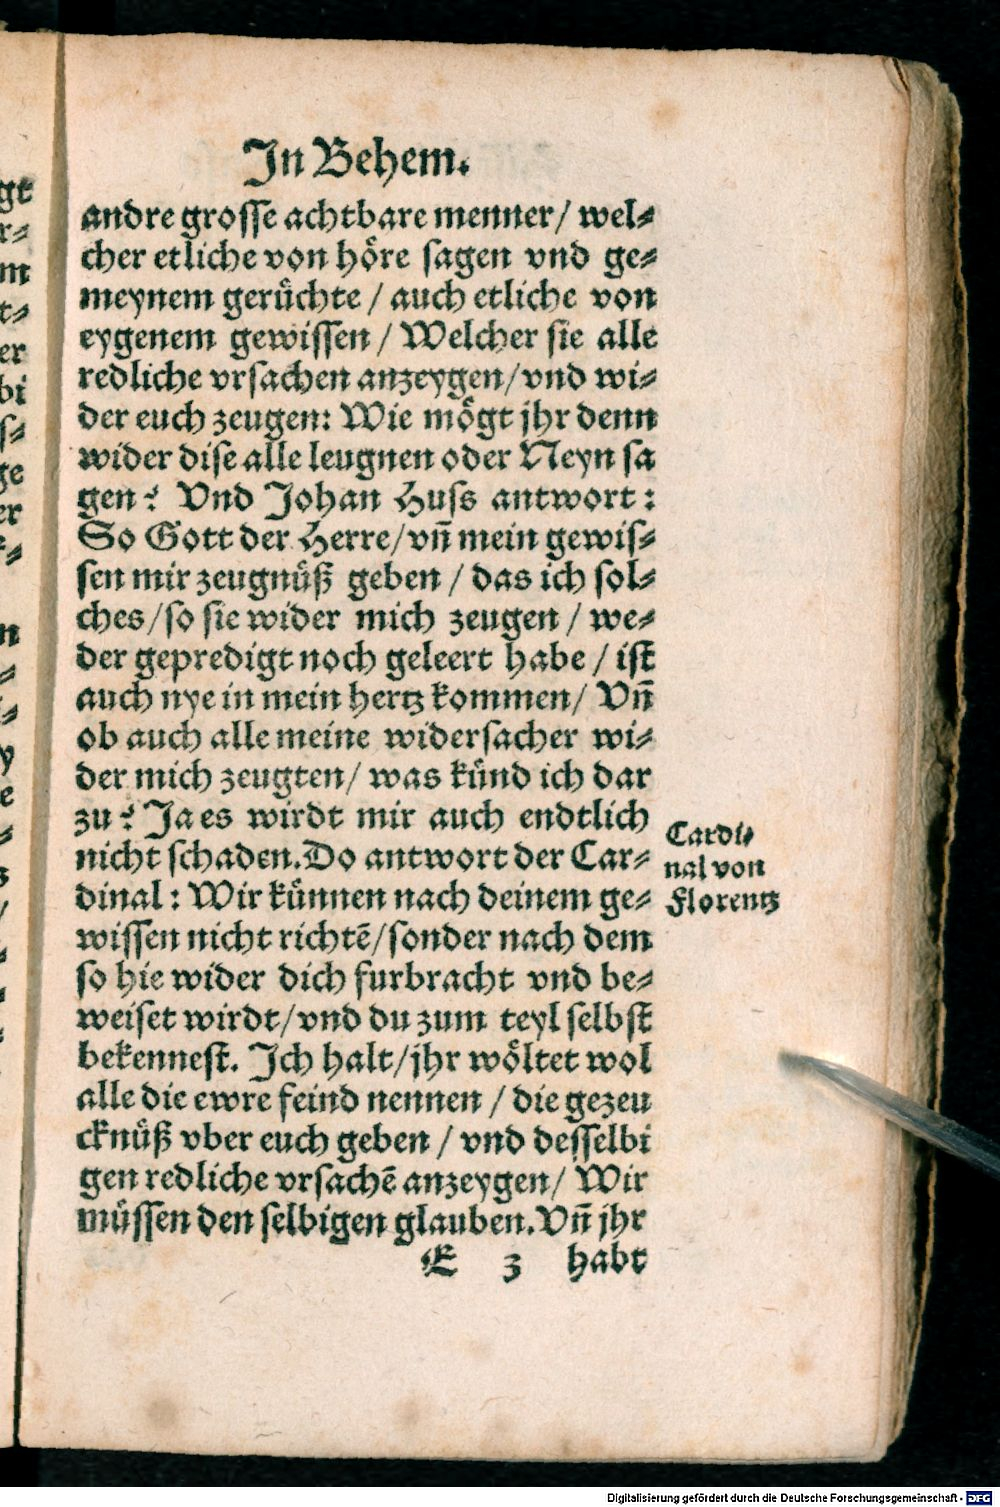 In Behem.
andre grosse achtbare menner/ wel⸗
cher etliche von höre sagen vnd ge⸗
meynem gerüchte / auch etliche von
eygenem gewissen / Welcher sie alle
redliche vrsachen anzeygen/vnd wi⸗
der euch zeugen: Wie mögt jhr denn
wider dise alle leugnen oder Neyn sa
gen? Vnd Johan Huss antwort:
So Gott der Herre/vñ mein gewis⸗
sen mir zeugnüß geben / das ich sol⸗
ches/so sie wider mich zeugen / we⸗
der gepredigt noch geleert habe / ist
auch nye in mein hertz kommen/ Vñ
ob auch alle meine widersacher wi⸗
der mich zeugten/ was künd ich dar
zu? Ja es wirdt mir auch endtlich
nicht schaden. Do antwort der Car⸗
dinal: Wir künnen nach deinem ge⸗
wissen nicht richtẽ/sonder nach dem
so hie wider dich furbracht vnd be⸗
weiset wirdt/vnd du zum teyl selbst
bekennest. Ich halt/jhr wöltet wol
alle die ewre feind nennen / die gezeu
cknüß vber euch geben / vnd desselbi
gen redliche vrsachẽ anzeygen/ Wir
müssen den selbigen glauben. Vñ jhr
E 3 habt
Cardi⸗
nal von
Florentz
Digitalisierung gefördert durch die Deutsche Forschungsgemeinschaft - DFG